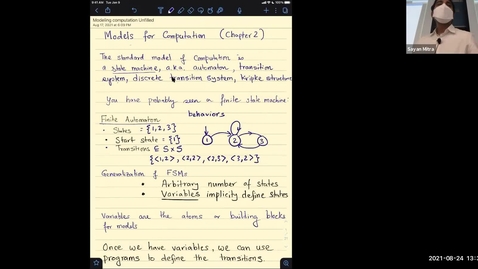 9:41 AM Tue Jan 6
Modeling computation Unfilled
Aug 17, 2021 at 6:59 PM
Models for Computation (Chapter 2)
The standard model of computation is
a state machine, a.k.a. automaton, transition
system, discrete transition system, Kripke structure
You have probably seen a finite state machine
behaviors
Finite Automaton
• States = {1,2,3}
• Start state = {1}
• Transitions ⊆ S×S
{<1,2>, <2,2>, <2,3>, <3,2>}
1 2 3
Generalization of FSMs
• Arbitrary number of states
• Variables implicitly define states
Variables are the atoms or building blocks
for models
Once we have variables, we can use
programs to define the transitions.
Sayan Mitra
2021-08-24 13:3